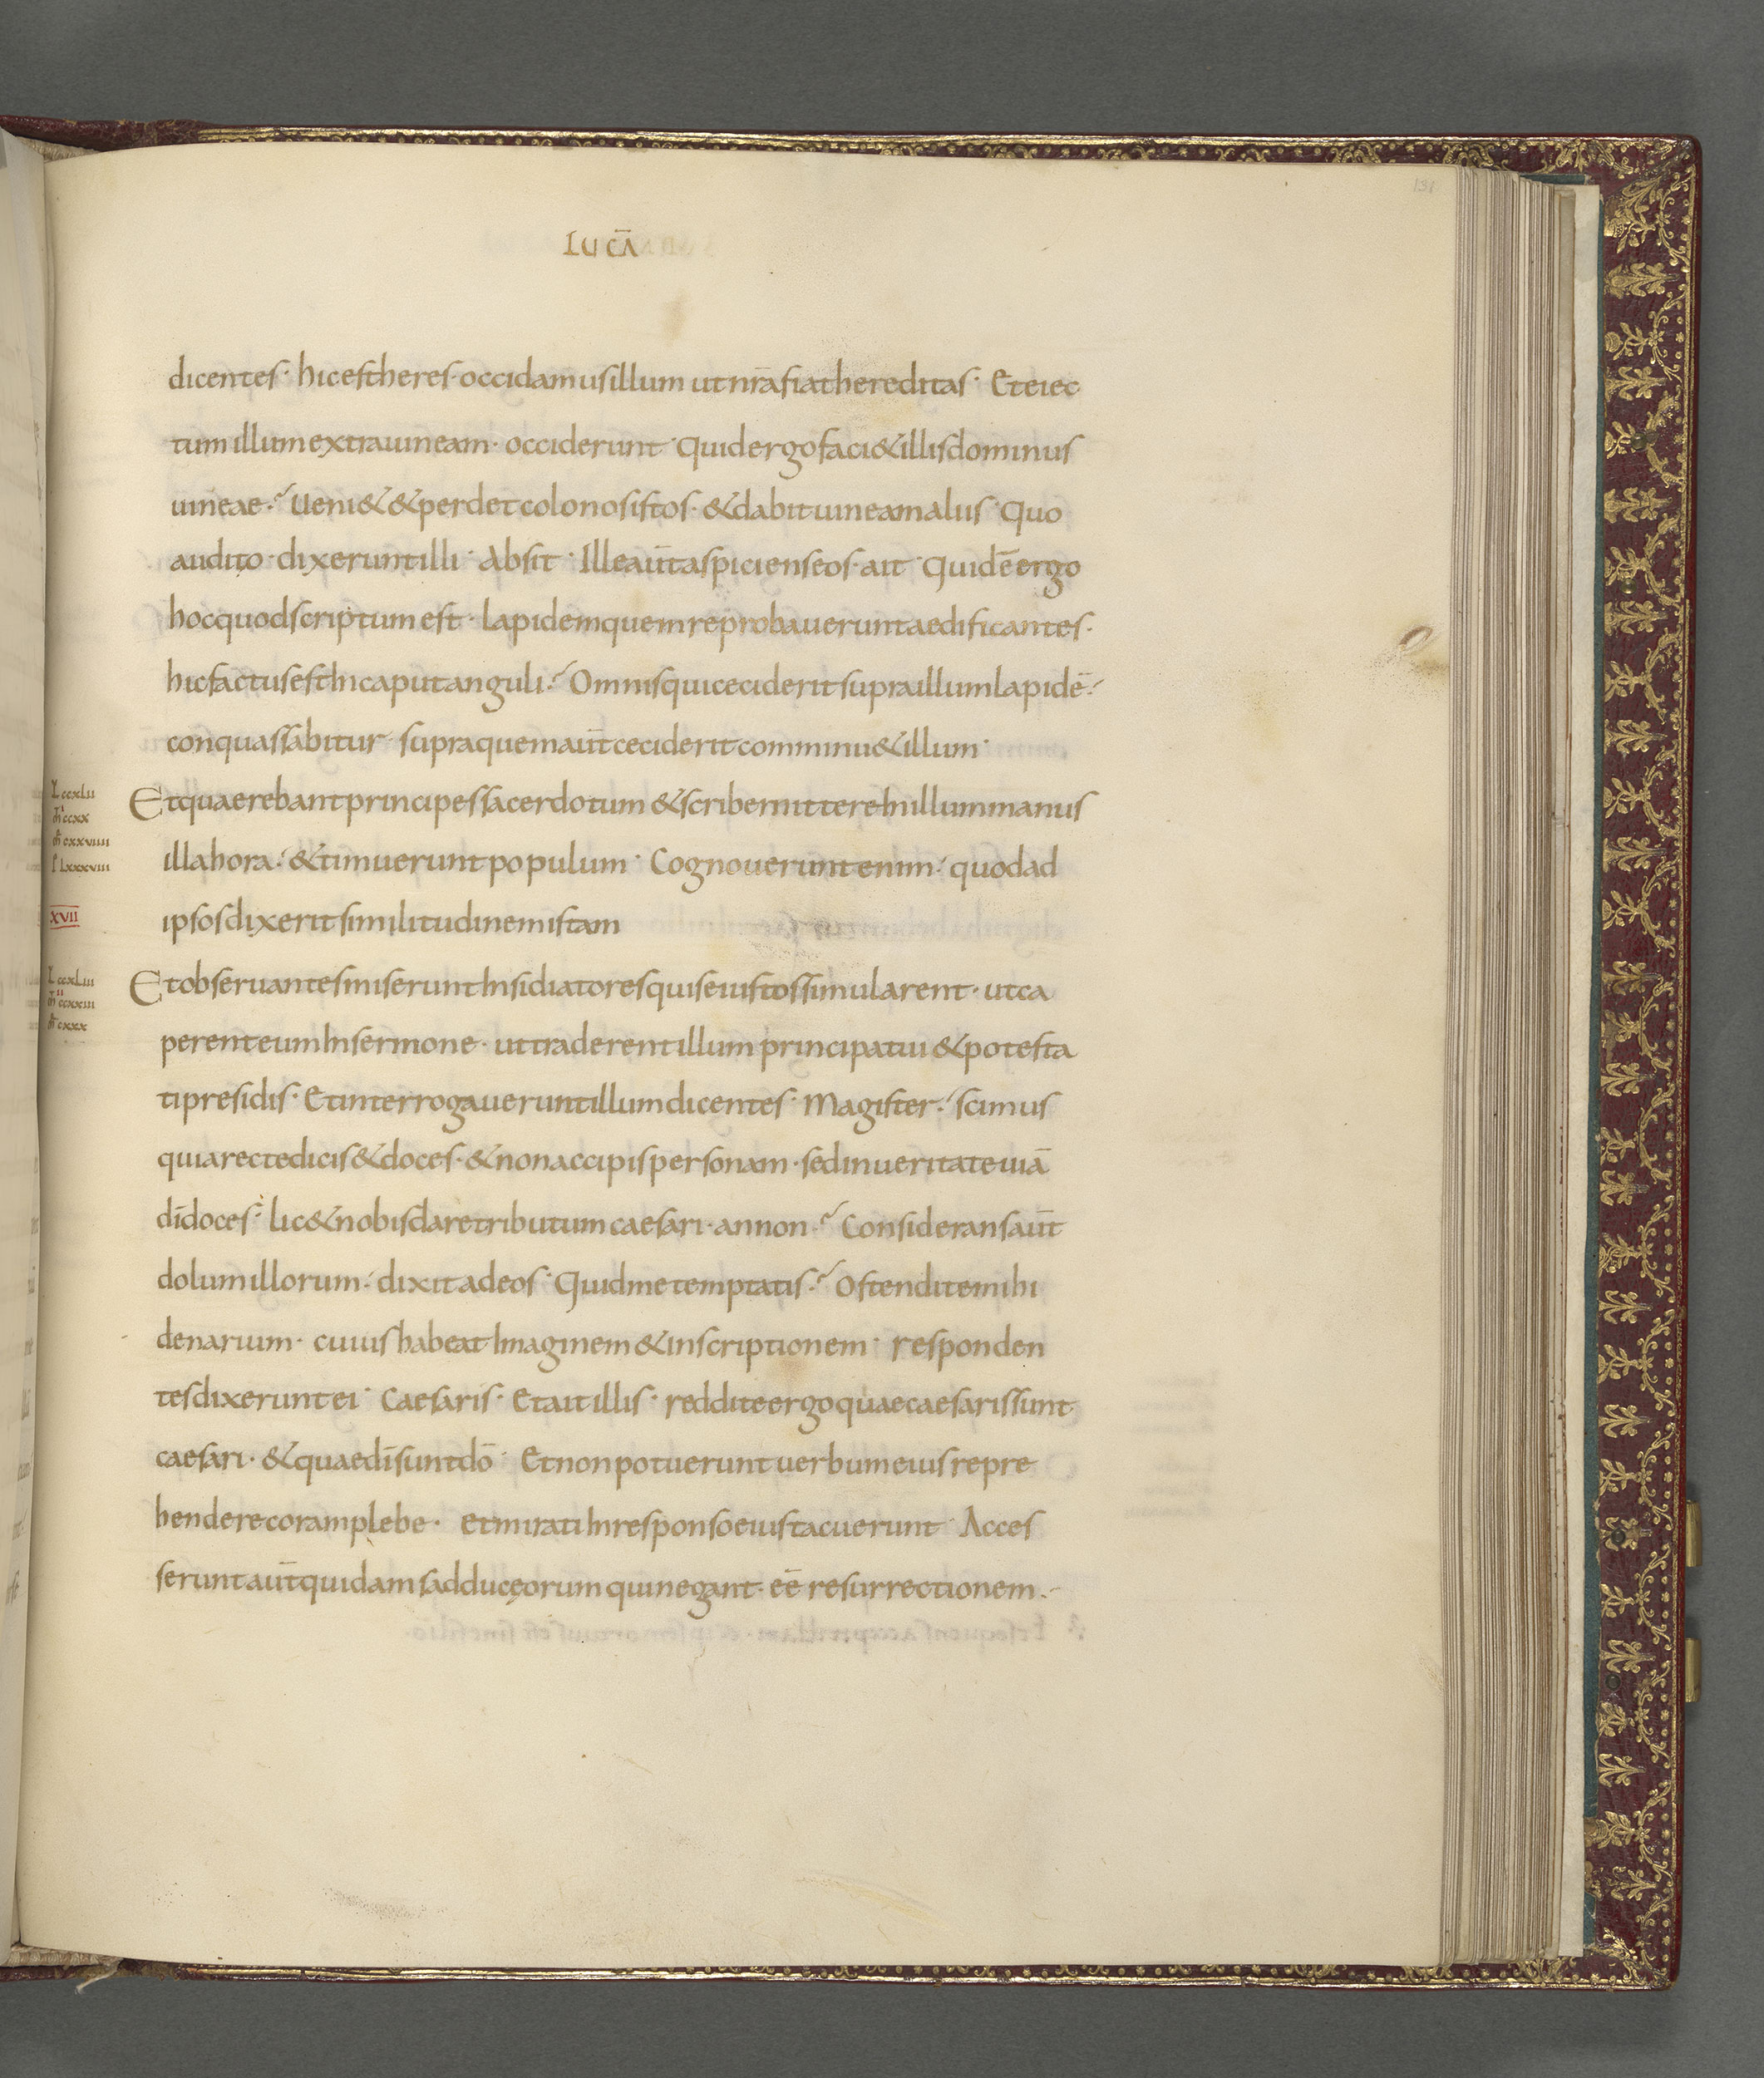 131
LUCĀ
dicentes· hic est heres· occidamus illum ut nr̄a fiat hereditas· Et eiec
tum illum extra uineam· occiderunt· Quid ergo faci& illis dominus
uineae? Ueni& & perdet colonos istos· & dabit uineam aliis· Quo
audito· dixerunt illi· Absit· Ille aūt aspiciens eos· ait· Quid ē ergo
hoc quod scriptum est· lapidem quem reprobauerunt aedificantes·
hic factus est in caput anguli? Omnis qui ceciderit supra illum lapidē·
conquassabitur· supra quem aūt ceciderit comminu& illum·
Lccxlii
Et quaerebant principes sacerdotum & scribe mittere in illum manus
m̄ccxx
m̄cxxviiii
illa hora· & timuerunt populum· Cognouerunt enim· quod ad
lxxxviii
XVII
ipsos dixerit similitudinem istam
Lccxliii
Et obseruantes miserunt insidiatores qui se iustos simularent· ut ca
m̄ccxxiii
m̄cxxx
perent eum in sermone· ut traderent illum principatui & potesta
ti presidis· Et interrogauerunt illum dicentes· Magister· scimus
quia recte dicis & doces· & non accipis personam· sed in ueritate uiā
dī doces· lic& nobis dare tributum caesari· an non? Considerans aūt
dolum illorum· dixit ad eos· Quid me temptatis? Ostendite mihi
denarium· cuius habeat imaginem & inscriptionem· responden
tes dixerunt ei· Caesaris· Et ait illis· reddite ergo quae caesaris sunt
caesari· & quae dī sunt dō· Et non potuerunt uerbum eius repre
hendere coram plebe· et mirati in responso eius tacuerunt· Acces
serunt aūt quidam sadduceorum qui negant· eē resurrectionem·